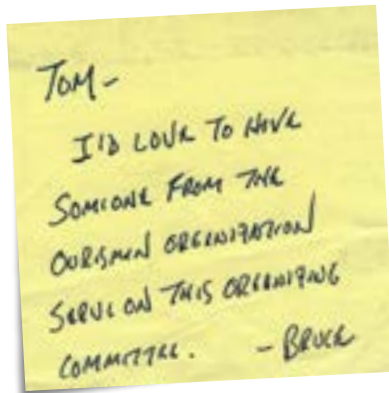 TOM-
I'D LOVE TO HAVE
SOMEONE FROM THE
OURISMAN ORGANIZATION
SERVE ON THIS ORGANIZING
COMMITTEE. - BRUCE